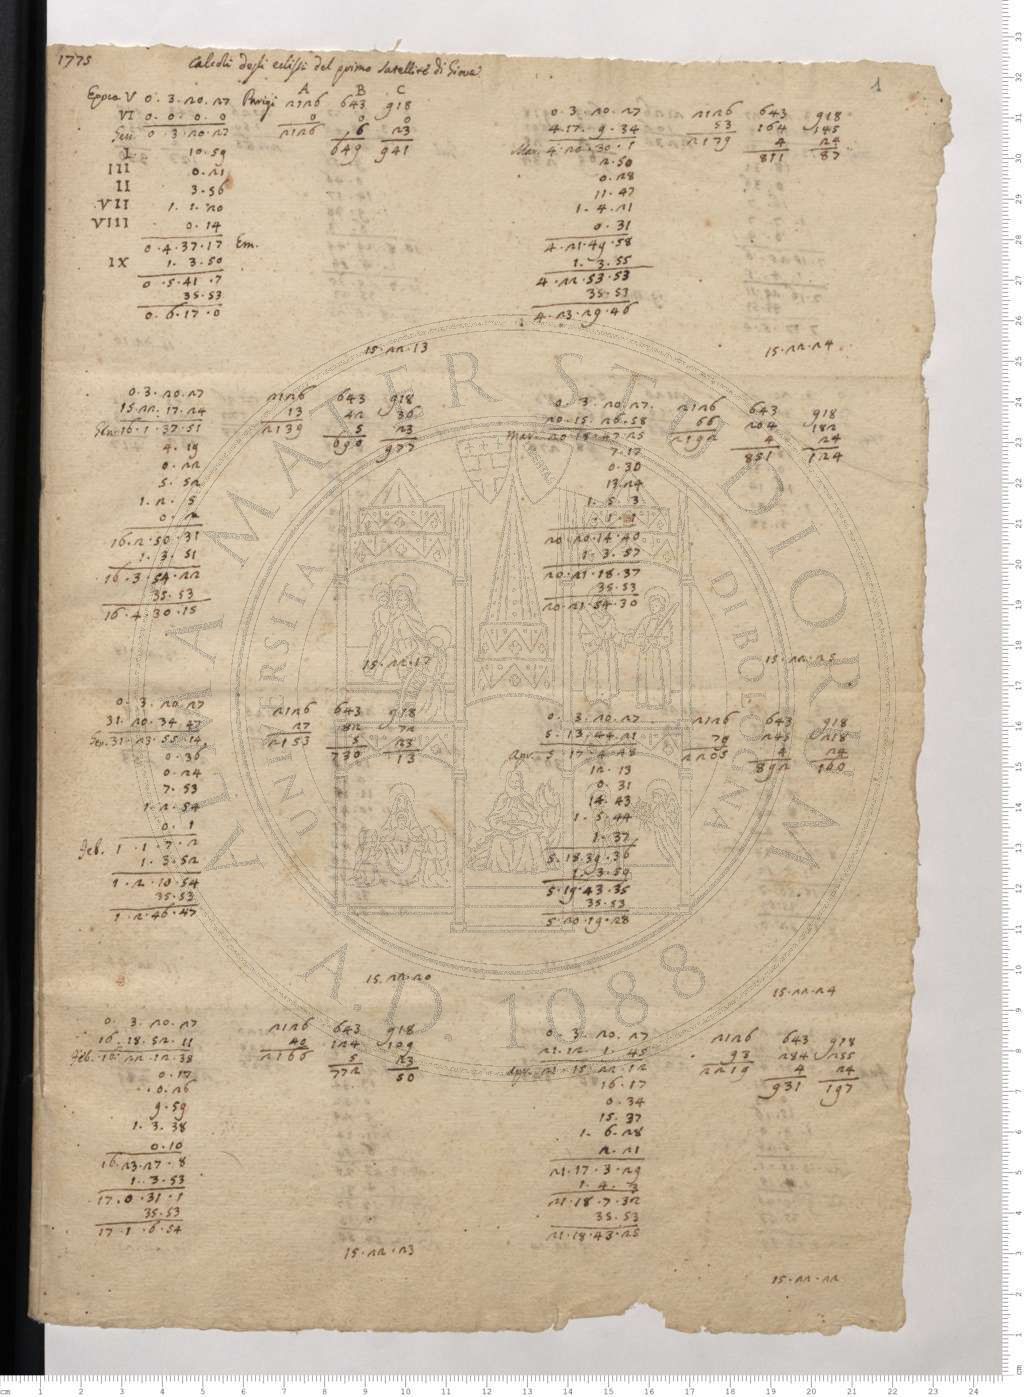 1775 Calcoli degli eclissi del primo Satellite di Giove 1
A B C
Epoca V 0. 3. 20. 27 Parigi 2126 643 918
VI 0. 0. 0. 0 0 0 0
Gen. 0. 3. 20. 27 2126 6 23
649 941
I 10. 59
III 0. 21
II 3. 56
VII 1. 1. 20
VIII 0. 14
0. 4. 37. 17 Em.
IX 1. 3. 50
0. 5. 41. 7
35. 53
0. 6. 17. 0
15. 22. 13
0. 3. 20. 27 2126 643 918
15. 22. 17. 24 13 42 36
Gen. 16. 1. 37. 51 2139 5 23
690 977
4. 19
0. 22
5. 52
1. 2. 5
0. 2
16. 2. 50. 31
1. 3. 51
16. 3. 54. 22
35. 53
16. 4. 30. 15
15. 22. 17
0. 3. 20. 27 2126 643 918
31. 20. 34. 47 27 82 72
Gen. 31. 23. 55. 14 2153 5 23
730 13
0. 36
0. 24
7. 53
1. 2. 54
0. 1
Feb. 1. 1. 7. 2
1. 3. 52
1. 2. 10. 54
35. 53
1. 2. 46. 47
15. 22. 20
0. 3. 20. 27 2126 643 918
16. 18. 52. 11 40 124 109
Feb. 16. 22. 12. 38 2166 5 23
772 50
0. 17
0. 26
9. 59
1. 3. 38
0. 10
16. 23. 27. 8
1. 3. 53
17. 0. 31. 1
35. 53
17. 1. 6. 54
15. 22. 23
0. 3. 20. 27 2126 643 918
4. 17. 9. 34 53 164 145
Mar. 4. 20. 30. 1 2179 4 24
811 87
2. 50
0. 28
11. 47
1. 4. 21
0. 31
4. 21. 49. 58
1. 3. 55
4. 22. 53. 53
35. 53
4. 23. 29. 46
15. 22. 24
0. 3. 20. 27 2126 643 918
20. 15. 26. 58 66 204 182
Mar. 20. 18. 47. 25 2192 4 24
851 124
7. 17
0. 30
13. 24
1. 5. 3
1. 1
20. 20. 14. 40
1. 3. 57
20. 21. 18. 37
35. 53
20. 21. 54. 30
15. 22. 25
0. 3. 20. 27 2126 643 918
5. 13. 44. 21 79 245 218
Apr. 5. 17. 4. 48 2205 4 24
892 160
12. 13
0. 31
14. 43
1. 5. 44
1. 37
5. 18. 39. 36
1. 3. 59
5. 19. 43. 35
35. 53
5. 20. 19. 28
15. 22. 24
0. 3. 20. 27 2126 643 918
21. 12. 1. 45 93 284 255
Apr. 21. 15. 22. 12 2219 4 24
931 197
16. 17
0. 34
15. 37
1. 6. 28
2. 21
21. 17. 3. 29
1. 4. 3
21. 18. 7. 32
35. 53
21. 18. 43. 25
15. 22. 22
ALMA MATER STUDIORUM
UNIVERSITÀ DI BOLOGNA
A.D. 1088